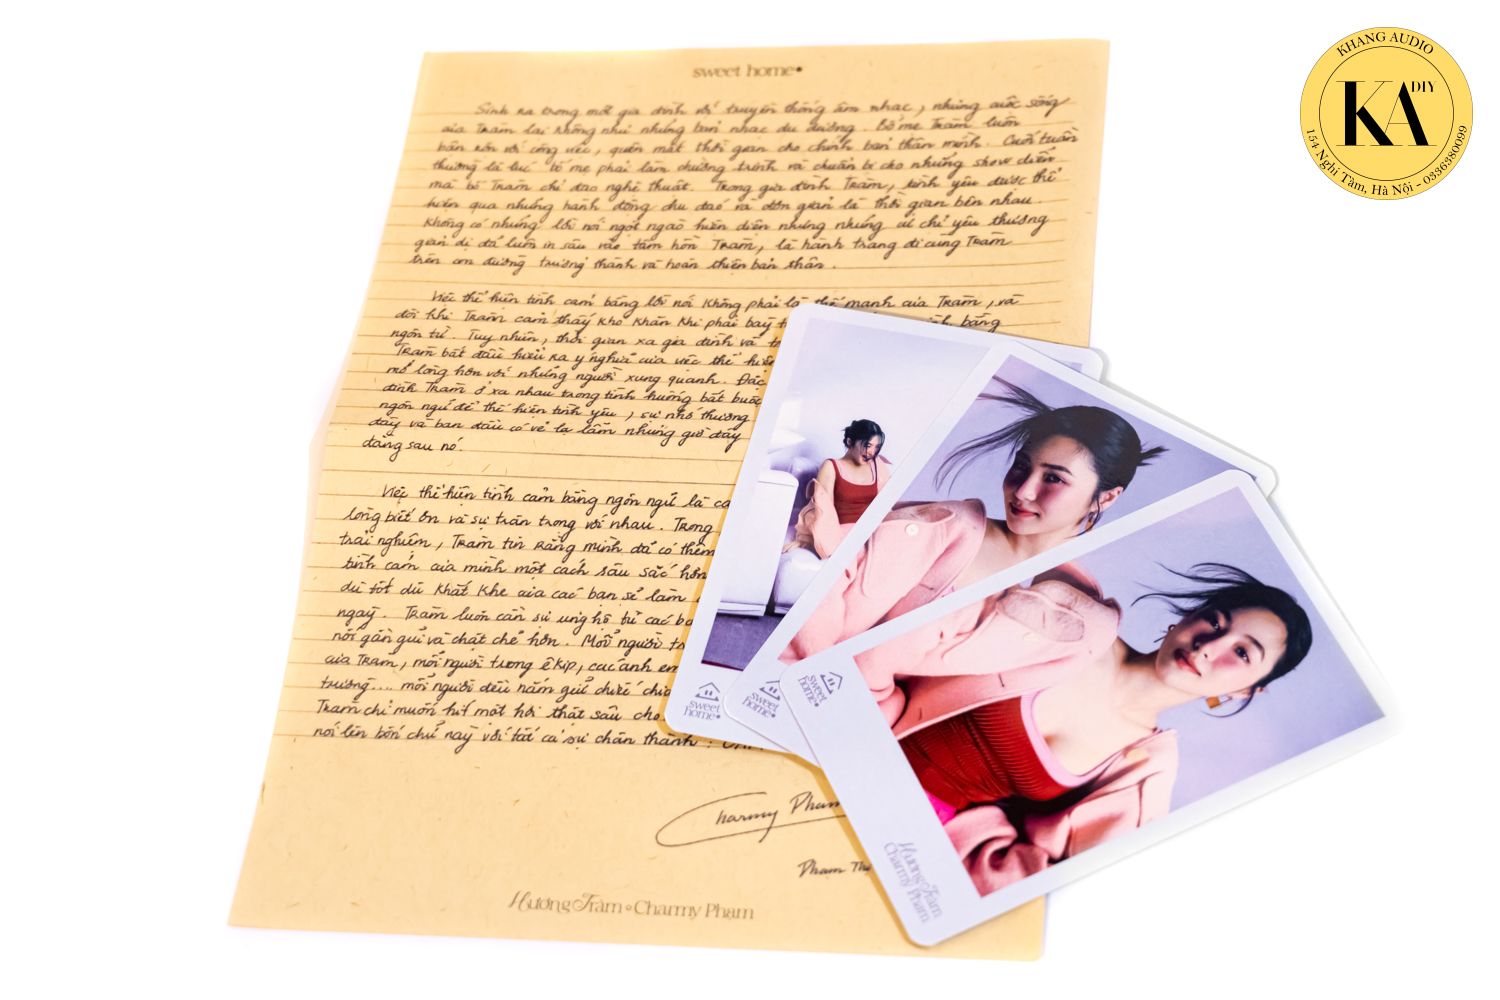 KHANG AUDIO
KA DIY
154 Nghi Tàm, Hà Nội - 0336380099
sweet home
Sinh ra trong một gia đình với truyền thống âm nhạc, nhưng cuộc sống
của Trâm lại không như những bản nhạc du dương. Bố mẹ Trâm luôn
bận rộn với công việc, quên mất thời gian cho chính bản thân mình. Cuối tuần
thường là lúc bố mẹ phải làm chương trình và chuẩn bị cho những show diễn
mà bố Trâm chỉ đạo nghệ thuật. Trong gia đình Trâm, tình yêu được thể
hiện qua những hành động chu đáo và đơn giản là thời gian bên nhau.
Không có những lời nói ngọt ngào hiện diện nhưng những cử chỉ yêu thương
giản dị đã luôn in sâu vào tâm hồn Trâm, là hành trang đi cùng Trâm
trên con đường trưởng thành và hoàn thiện bản thân.
Việc thể hiện tình cảm bằng lời nói không phải là thế mạnh của Trâm, và
đôi khi Trâm cảm thấy khó khăn khi phải bày bằng
ngôn từ. Tuy nhiên, thời gian xa gia đình và
Trâm bắt đầu hiểu ra ý nghĩa của việc thể hiện
mở lòng hơn với những người xung quanh. Đặc
đình Trâm ở xa nhau trong tình huống bắt buộc
ngôn ngữ để thể hiện tình yêu, sự nhớ thương
đây và ban đầu có vẻ lạ lẫm nhưng giờ đây
đằng sau nó.
Việc thể hiện tình cảm bằng ngôn ngữ là
lòng biết ơn và sự trân trọng với nhau. Trong
trải nghiệm, Trâm tin rằng mình đã có thêm
tình cảm của mình một cách sâu sắc hơn
dù tốt dù khắt khe của các bạn sẽ làm
ngay. Trâm luôn cần sự ủng hộ từ các
nối gần gũi và chặt chẽ hơn. Mỗi người
của Trâm, mỗi người trong ê kíp, các anh em
trường.... mỗi người đều nắm giữ chiếc
Trâm chỉ muốn hít một hơi thật sâu cho
nói lên bốn chữ này với tất cả sự chân thành:
Charmy Pham
Phạm
Hương Tràm Charmy Phạm
sweet
home
sweet
home
sweet
home
Hương Tràm
Charmy Phạm